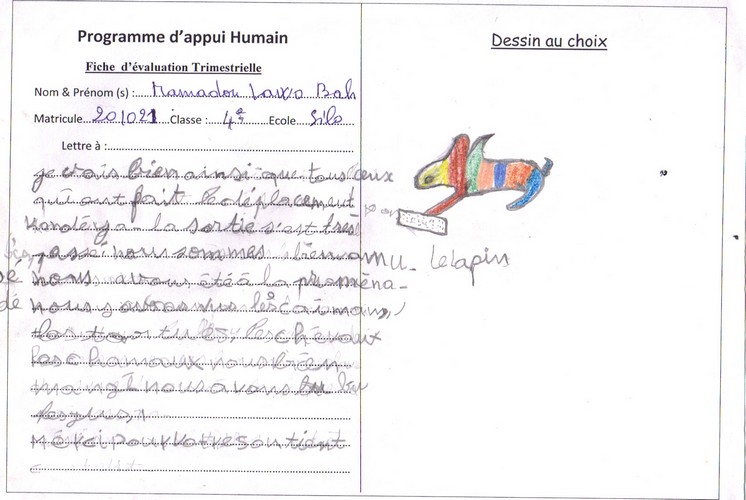 Programme d'appui Humain
Fiche d'évaluation Trimestrielle
Nom & Prénom (s) : Mamadou Bah
Matricule 201021 Classe : 4e Ecole Silo
Lettre à :
je vais bien ainsi que tous ceux
qui ont fait le déplacement
la sortie s'est très
passé nous sommes bien amu
sé nous avons été à la promena-
dé nous les caïmans,
les tortules, les chevaux
les chamaux nous bien
mangé nous avons bu
Mérci pour votre soutient
Dessin au choix
Le lapin